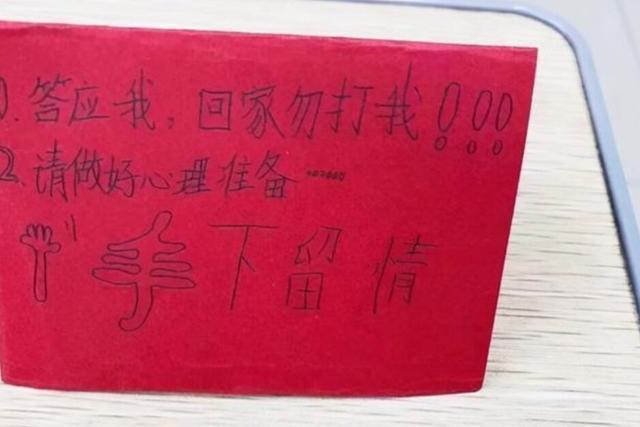 1.答应我，回家勿打我！！！
2.请做好心理准备……
手下留情